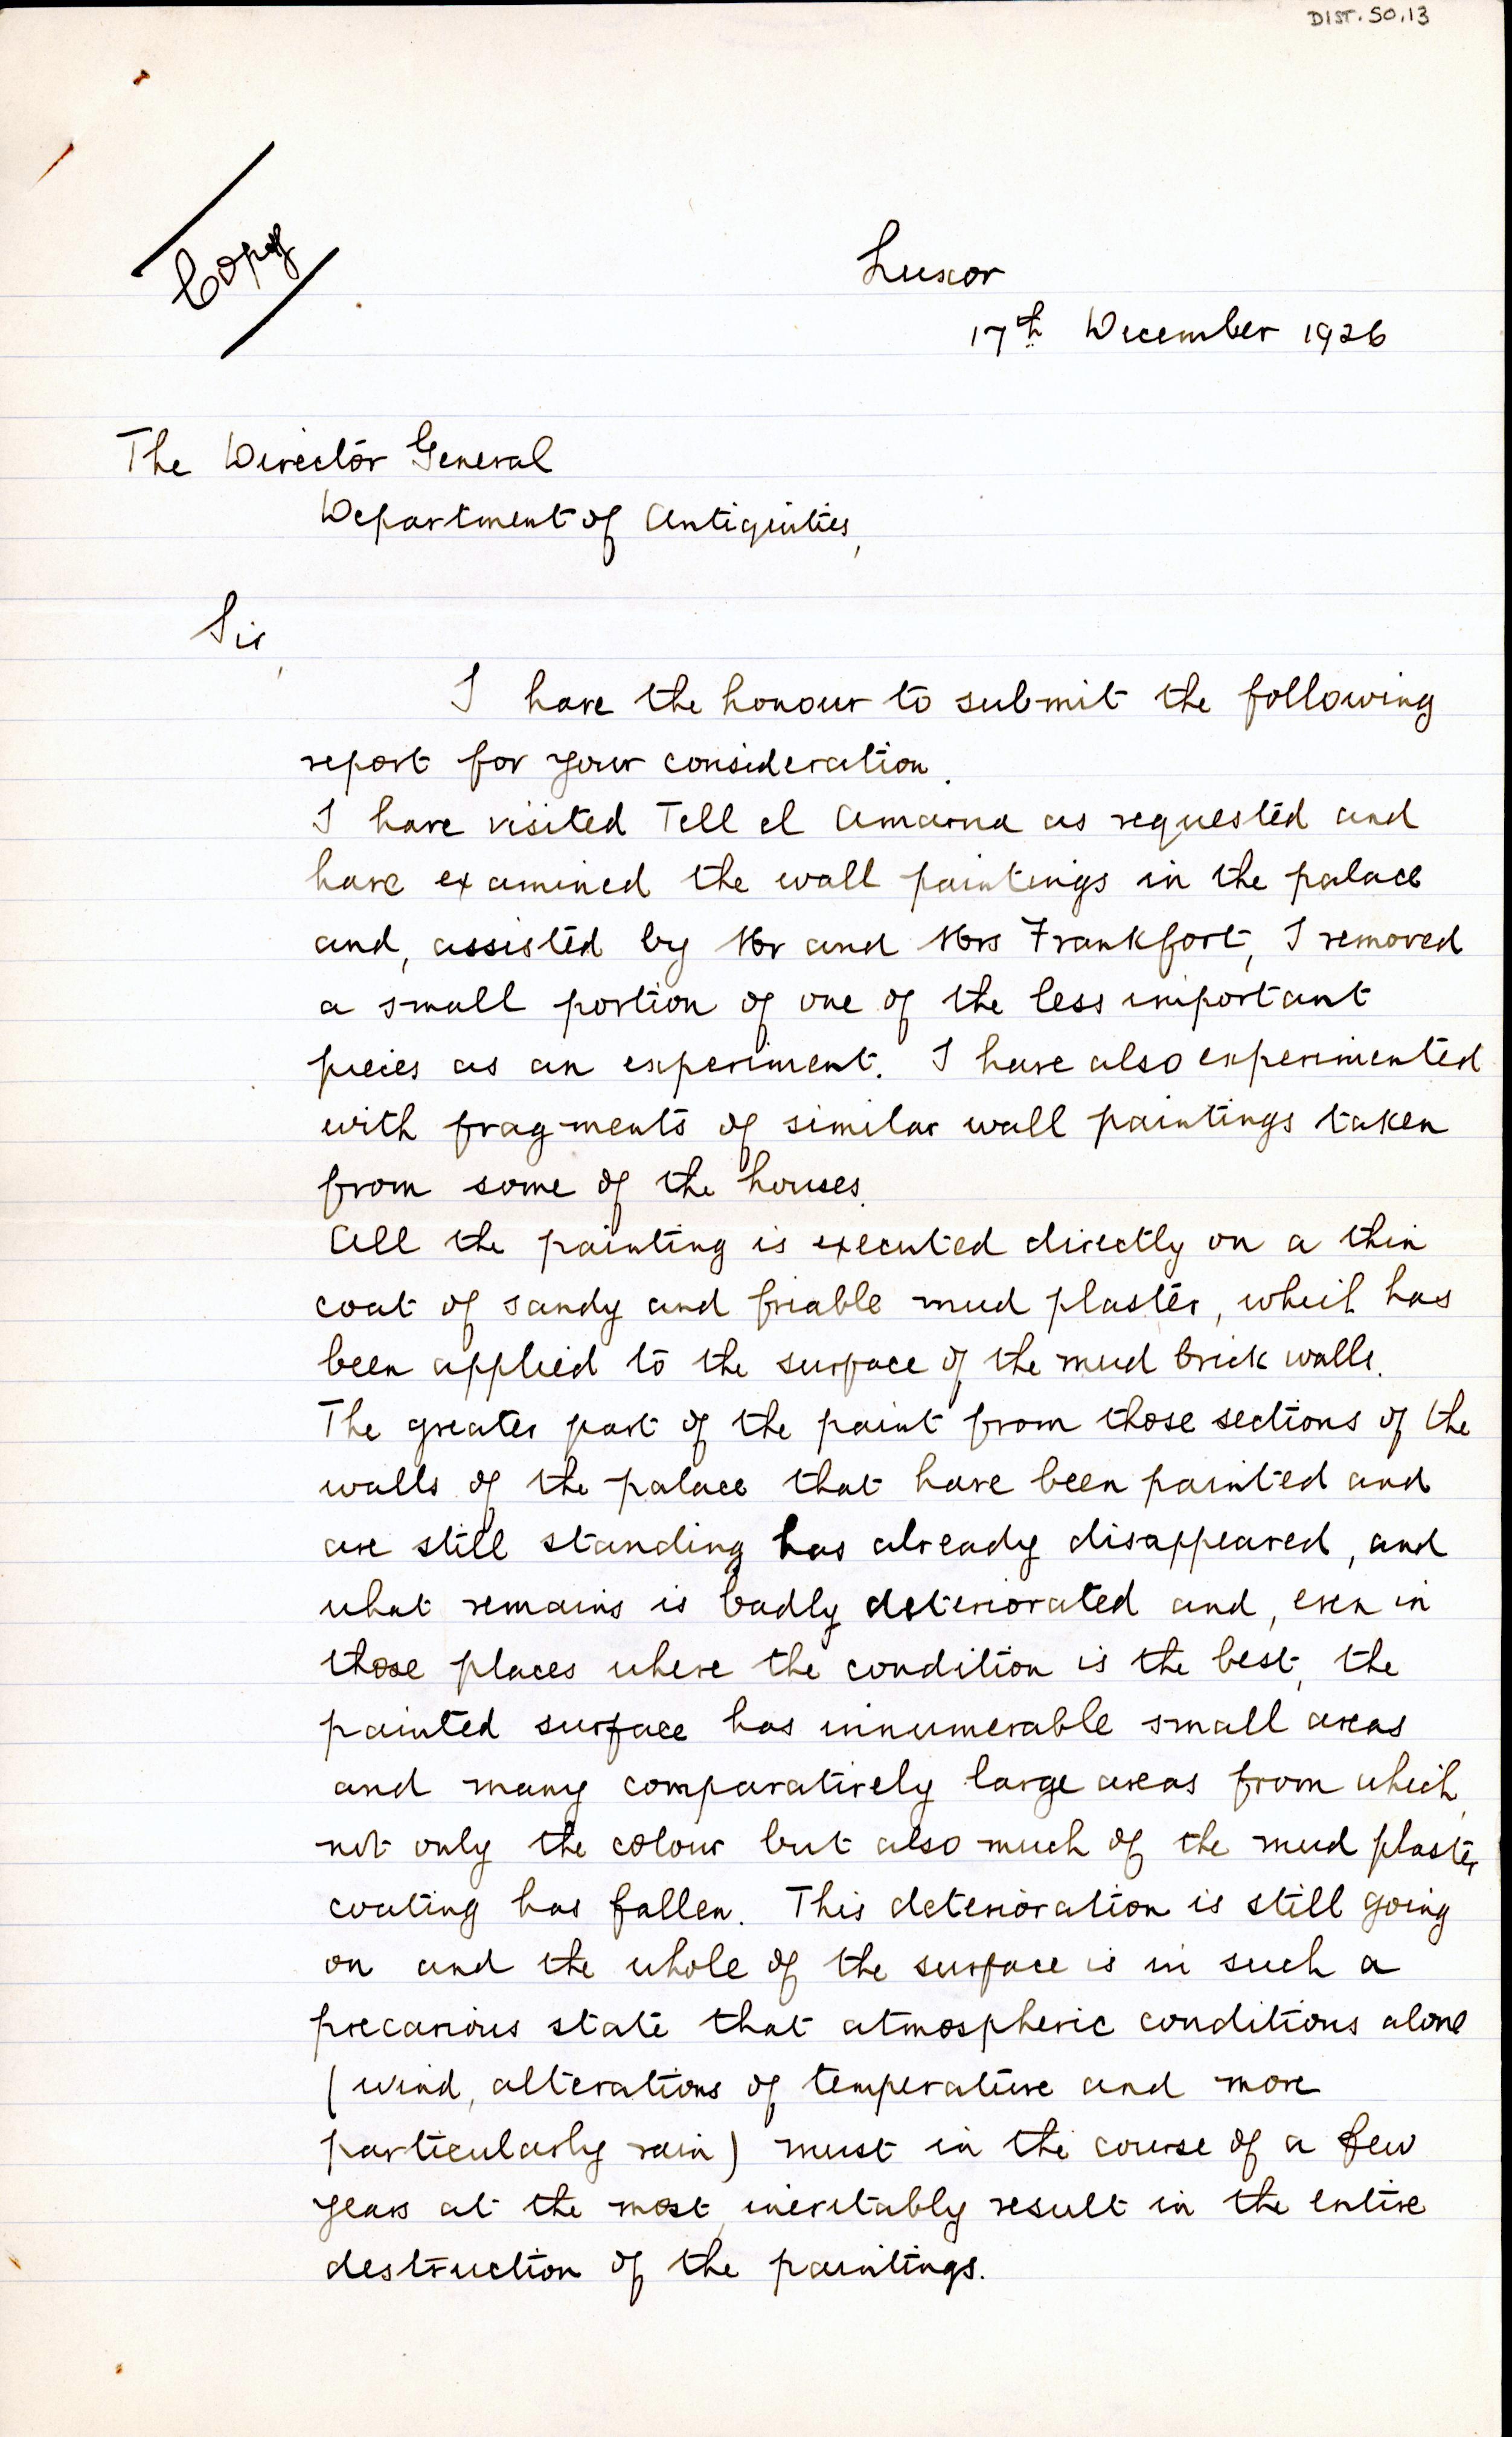 DIST. 50.13
Copy
Luxor
17th December 1926
The Director General
Department of Antiquities,
Sir,
I have the honour to submit the following
report for your consideration.
I have visited Tell el Amarna as requested and
have examined the wall paintings in the palace
and, assisted by Mr and Mrs Frankfort, I removed
a small portion of one of the less important
pieces as an experiment. I have also experimented
with fragments of similar wall paintings taken
from some of the houses.
All the painting is executed directly on a thin
coat of sandy and friable mud plaster, which has
been applied to the surface of the mud brick walls.
The greater part of the paint from those sections of the
walls of the palace that have been painted and
are still standing has already disappeared, and
what remains is badly deteriorated and, even in
those places where the condition is the best, the
painted surface has innumerable small areas
and many comparatively large areas from which,
not only the colour but also much of the mud plaster
coating has fallen. This deterioration is still going
on and the whole of the surface is in such a
precarious state that atmospheric conditions alone
(wind, alterations of temperature and more
particularly rain) must in the course of a few
years at the most, inevitably result in the entire
destruction of the paintings.